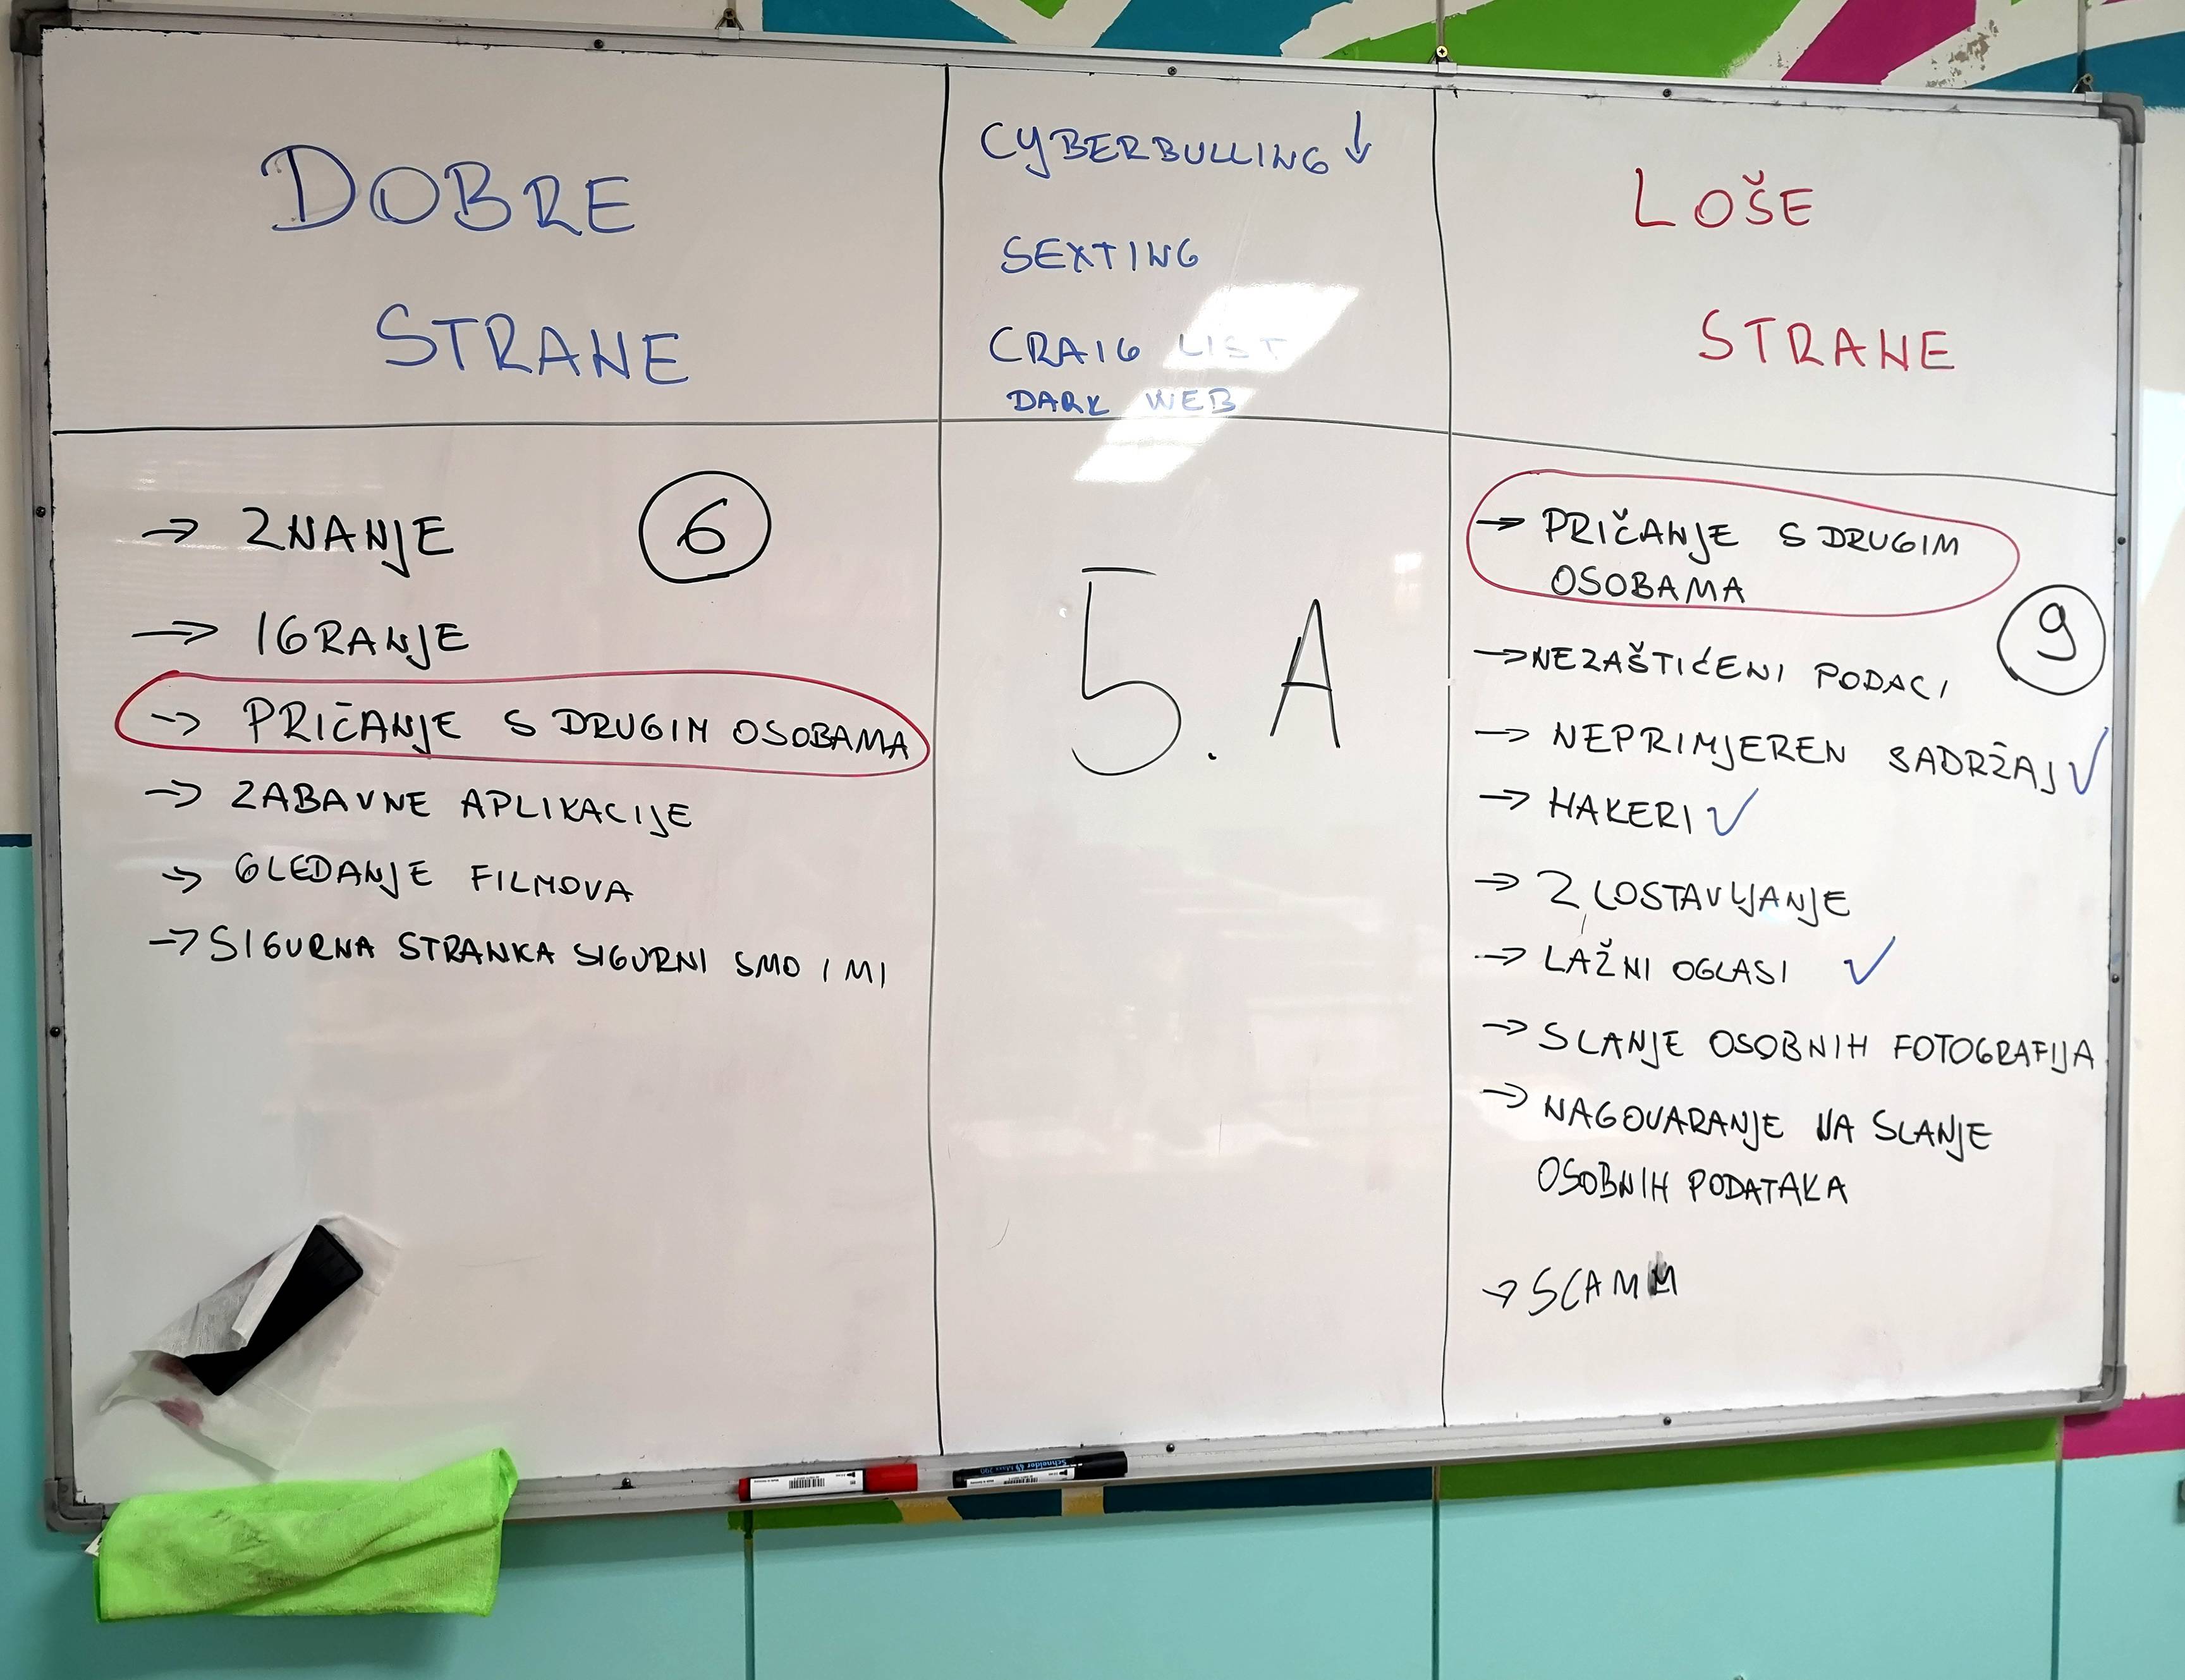 DOBRE
STRANE
CYBERBULLING ↓
SEXTING
CRAIG LIST
DARK WEB
LOŠE
STRANE
→ ZNANJE
6
→ IGRANJE
→ PRIČANJE S DRUGIM OSOBAMA
→ ZABAVNE APLIKACIJE
→ GLEDANJE FILMOVA
→ SIGURNA STRANKA SIGURNI SMO I MI
5. A
→ PRIČANJE S DRUGIM
OSOBAMA
9
→ NEZAŠTIĆENI PODACI
→ NEPRIMJEREN SADRŽAJ ✓
→ HAKERI ✓
→ ZLOSTAVLJANJE
→ LAŽNI OGLASI ✓
→ SLANJE OSOBNIH FOTOGRAFIJA
→ NAGOVARANJE NA SLANJE
OSOBNIH PODATAKA
→ SCAM
Schneider Maxx 290